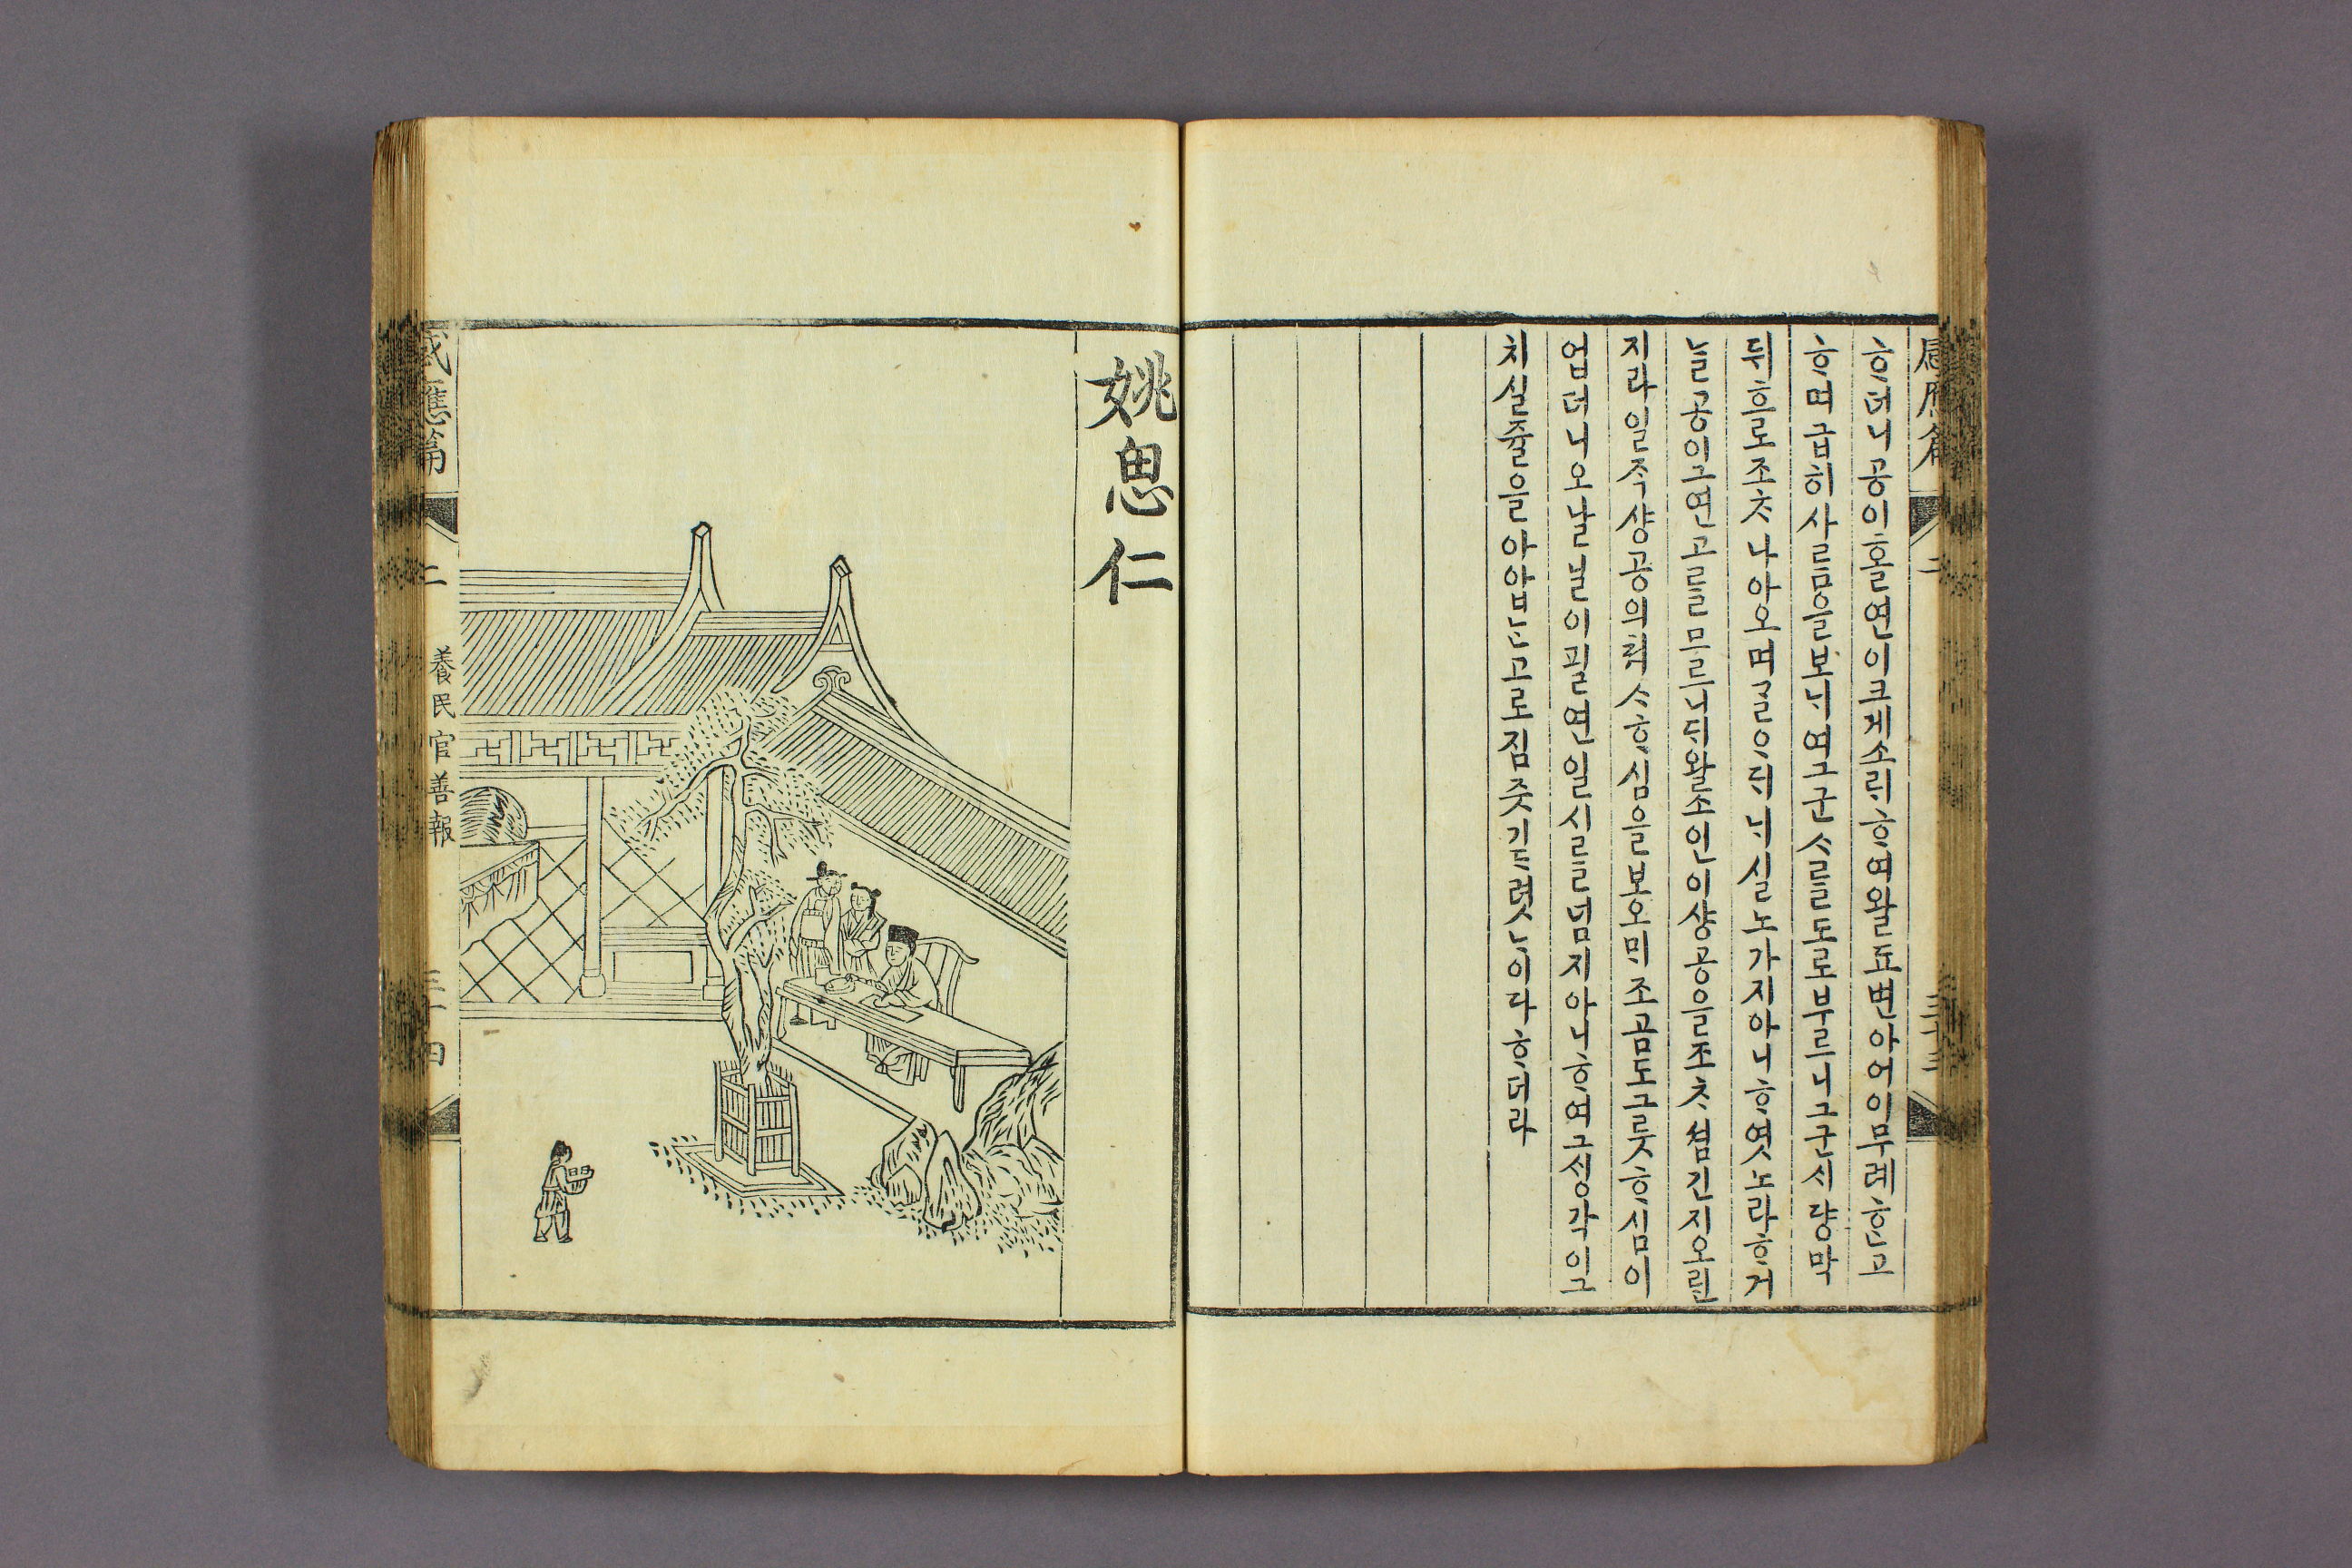 ᄒᆞ더니공이홀연이크게소ᄅᆡᄒᆞ여왈됴변아어이무례ᄒᆞᆫ고
ᄒᆞ며급히사ᄅᆞᆷ을보ᄂᆡ여그군ᄉᆞᄅᆞᆯ도로부르니그군시량막
뒤흐로조ᄎᆞ나아오며ᄀᆞᆯᄋᆞᄃᆡᄂᆡ실노가지아니ᄒᆞ엿노라ᄒᆞ거
ᄂᆞᆯ공이그연고ᄅᆞᆯ무르니ᄃᆡ왈소인이샹공을조ᄎᆞ셤긴지오랜
지라일즉샹공의쳐ᄉᆞᄒᆞ심을보오ᄆᆡ조곰도그릇ᄒᆞ심이
업더니오ᄂᆞᆯ날이필연일시ᄅᆞᆯ념지아니ᄒᆞ여그ᄉᆡᆼ각이긋
치실줄을아압ᄂᆞᆫ고로짐줏기ᄃᆞ렷ᄂᆞ이라ᄒᆞ더라
姚思仁
感應篇 二 養民官善報 三十四